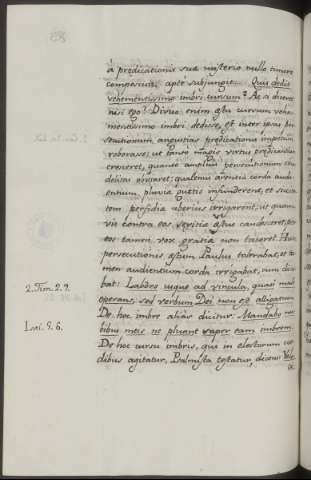 à predicationis suæ mysterio nullo timore
compescuit, aptè subjungit: Quis dedit
vehementissimo imbri cursum? Ac si diceret
nisi ego? Dũo enim cursum vehe-
mentissimo imbri dedisse, est inter ipsas per-
secutionum angustias prædicationis impetum
roborare; ut tanto magis virtus prædicationis
cresceret, quantò persecutionum cru-
delitas obviaret; quatenus arentia corda audi-
entium, pluviæ guttis infunderent, et sicca-
tam perfidiæ uberius irrigarent, ut quam-
vis contra eos sævitiæ æstus candesceret, eo-
tamen vox gratiæ non taceret. Hunc
persecutionis æstum Paulus tolerabat, et ta-
men audientium corda irrigabat, cum dice-
bat: Laboro usque ad vincula, quasi malè
operans, sed verbum Dei non est alligatum.
De hoc imbre aliàs dicitur: Mandabo nu-
bibus meis ne pluant super eam imbrem.
De hoc cursu imbris, qui in electorum cor-
dibus agitatur, Psalmista testatur, dicens: Velo-
2. Tim. 2. 9.
Isai. 5. 6.